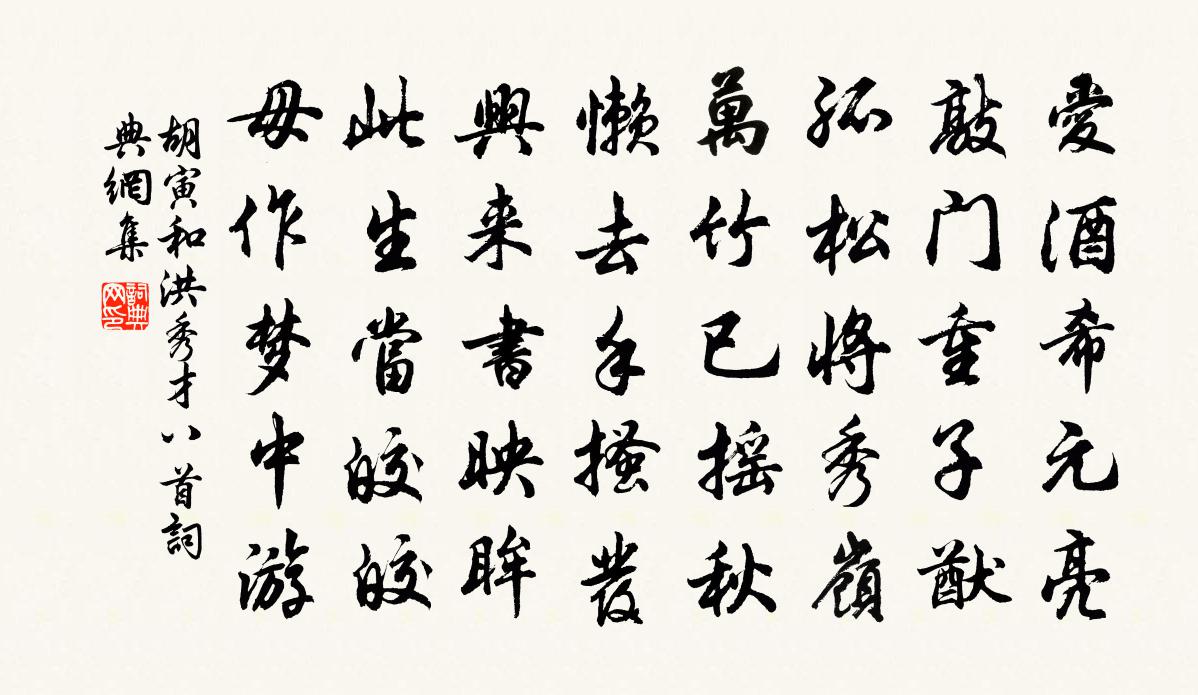 愛酒希元亮
敲门重子猷
孤松将秀嶺
萬竹已摇秋
懒去手搔发
興来書映眸
此生當皎皎
毋作梦中游
胡寅和洪秀才八首詞
典網集
詞典
网印